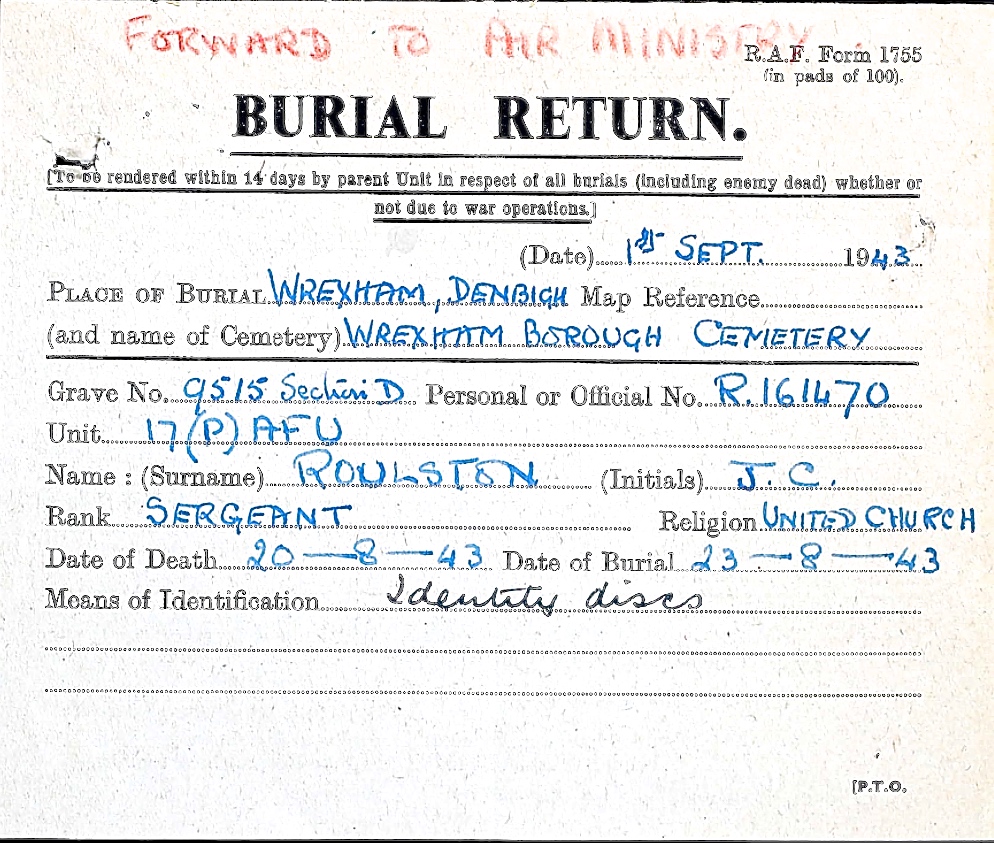 FORWARD TO AIR MINISTRY.
R.A.F. Form 1755
(in pads of 100).
BURIAL RETURN.
[To be rendered within 14 days by parent Unit in respect of all burials (including enemy dead) whether or
not due to war operations.]
(Date) 1st SEPT. 1943
PLACE OF BURIAL WREXHAM, DENBIGH Map Reference
(and name of Cemetery) WREXHAM BOROUGH CEMETERY
Grave No. 9515 Section D Personal or Official No. R.161470
Unit 17(P) AFU
Name : (Surname) ROULSTON (Initials) J.C.
Rank SERGEANT Religion UNITED CHURCH
Date of Death 20—8—43 Date of Burial 23—8—43
Means of Identification Identity discs
[P.T.O.